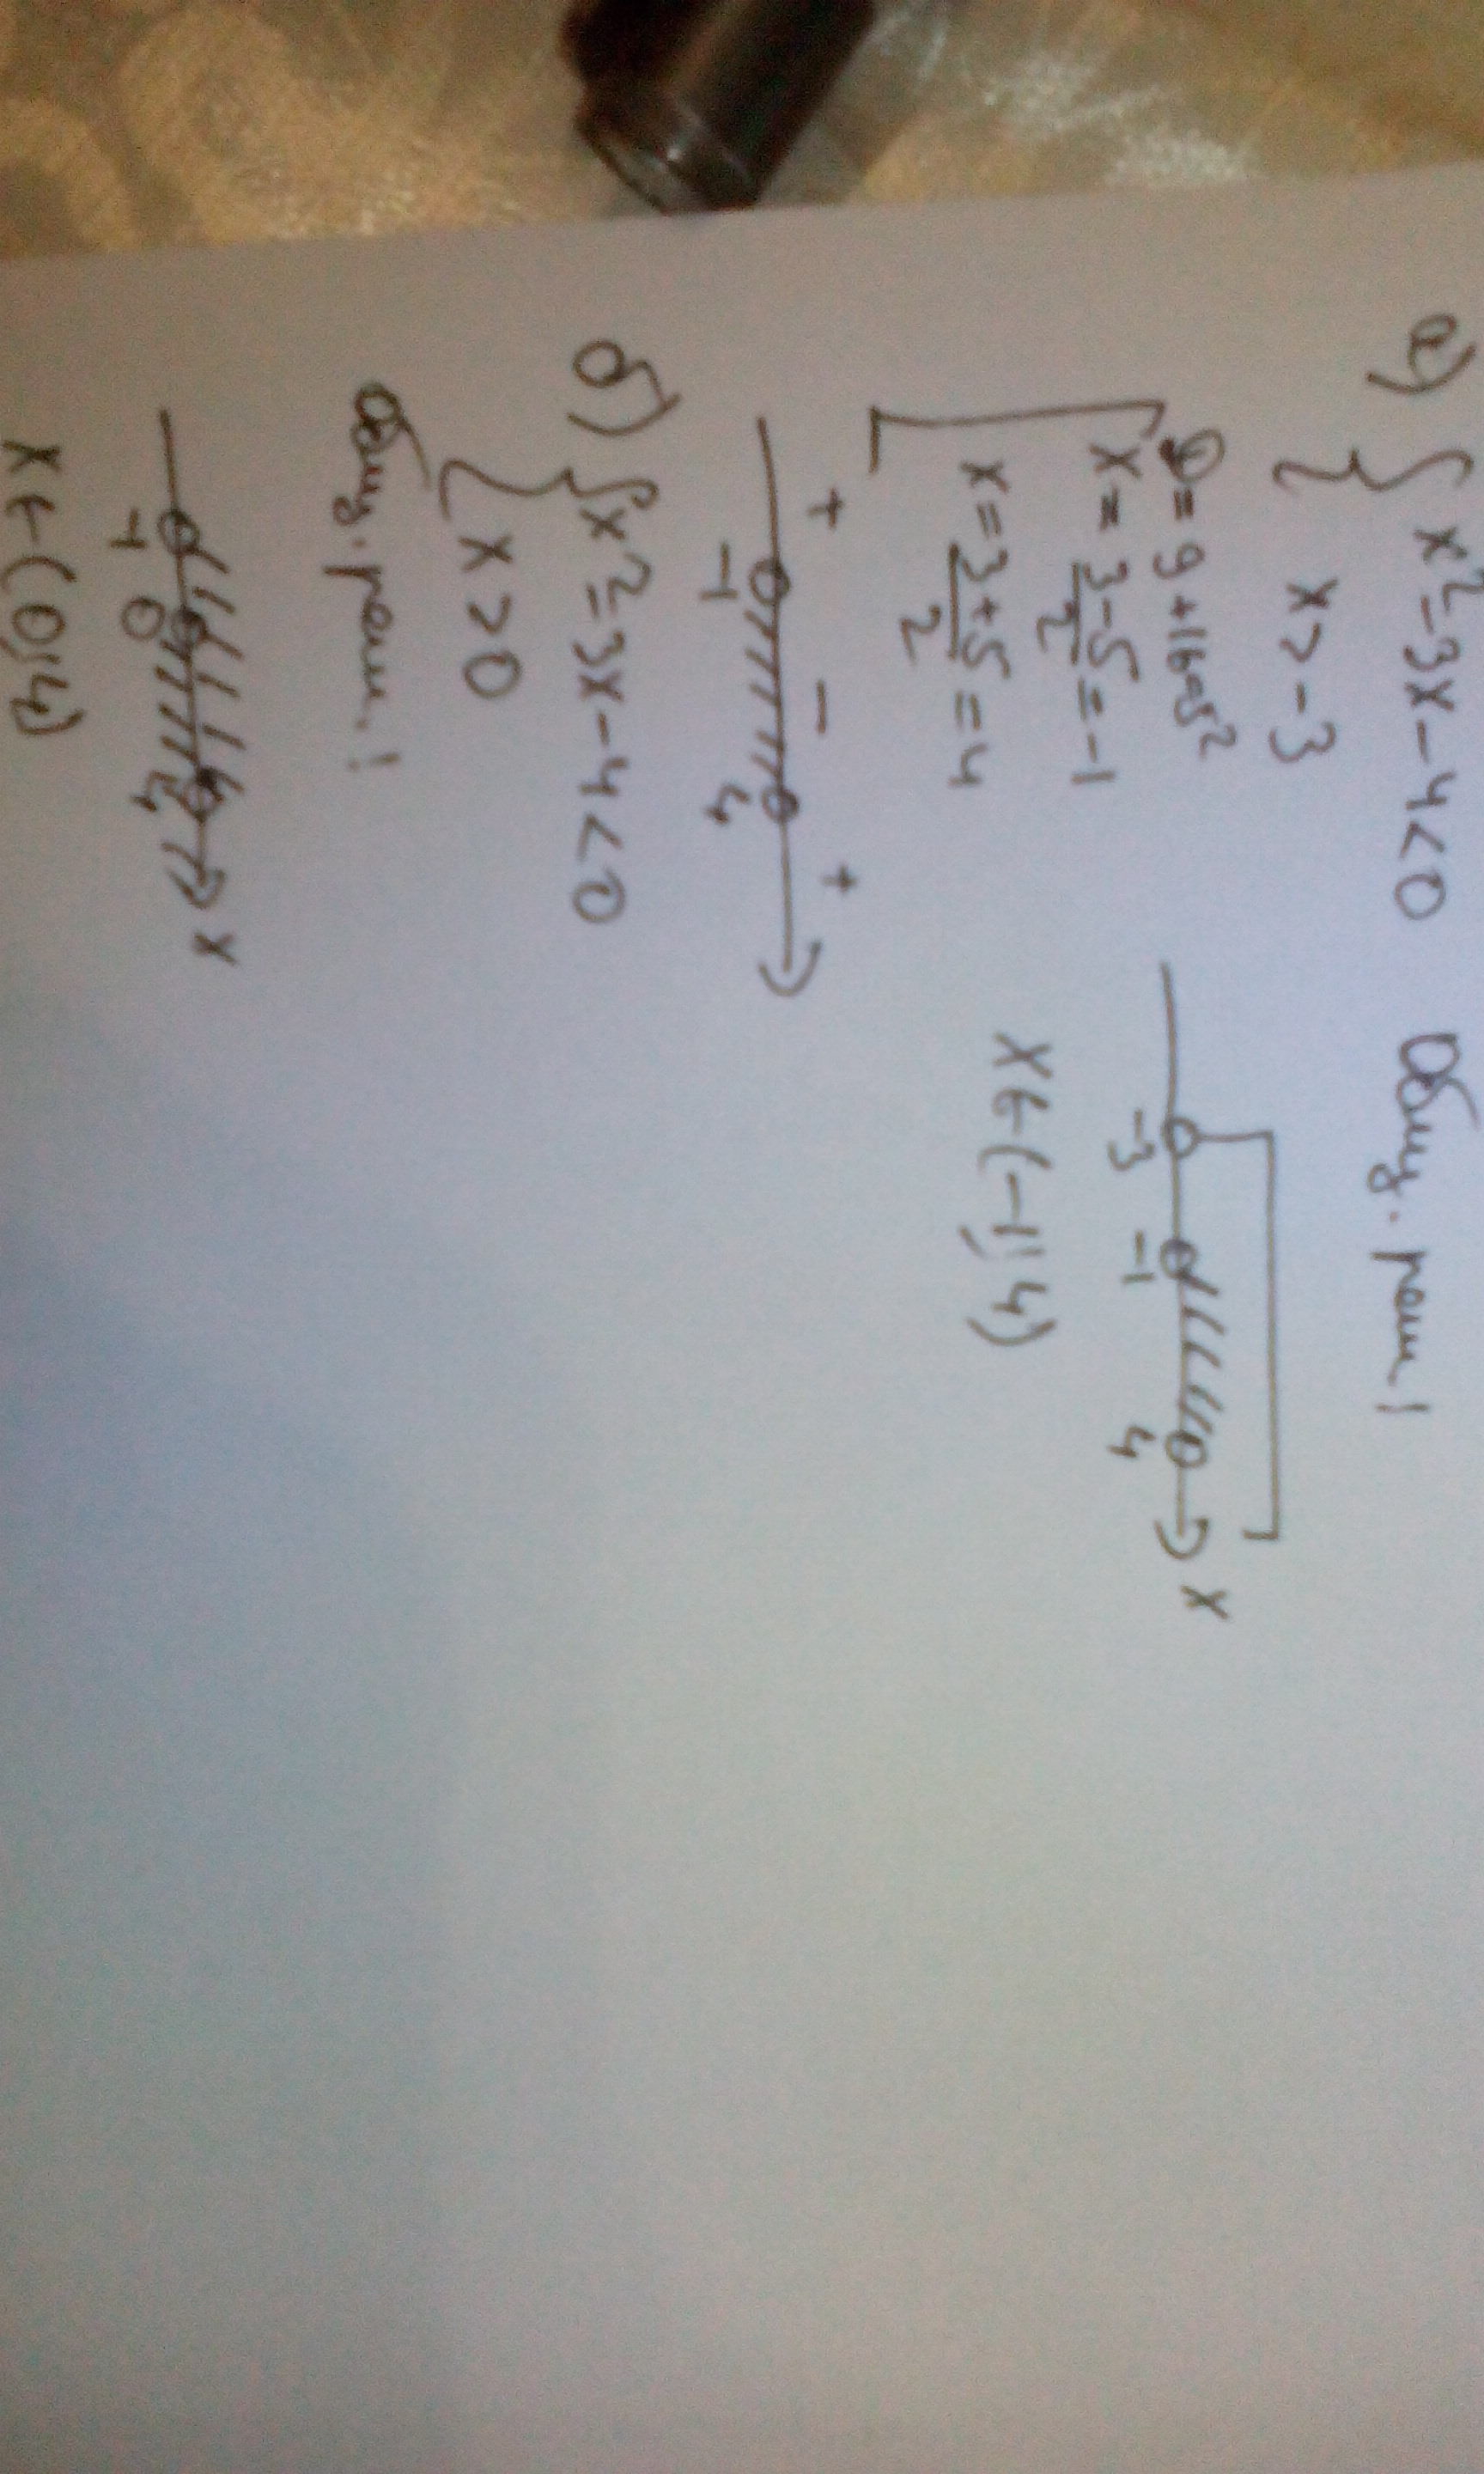 а) { x² - 3x - 4 < 0
x > -3
D = 9 + 16 = 5²
[ x = (3 - 5)/2 = -1
x = (3 + 5)/2 = 4
+ - +
-1 4
Общ. реш. !
-3 -1 4 x
x ∈ (-1; 4)
б) { x² - 3x - 4 < 0
x > 0
Общ. реш. !
-1 0 4 x
x ∈ (0; 4)